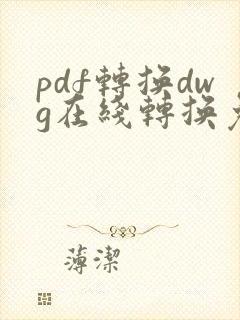 pdf轉換dw
g在綫轉換
薄潔